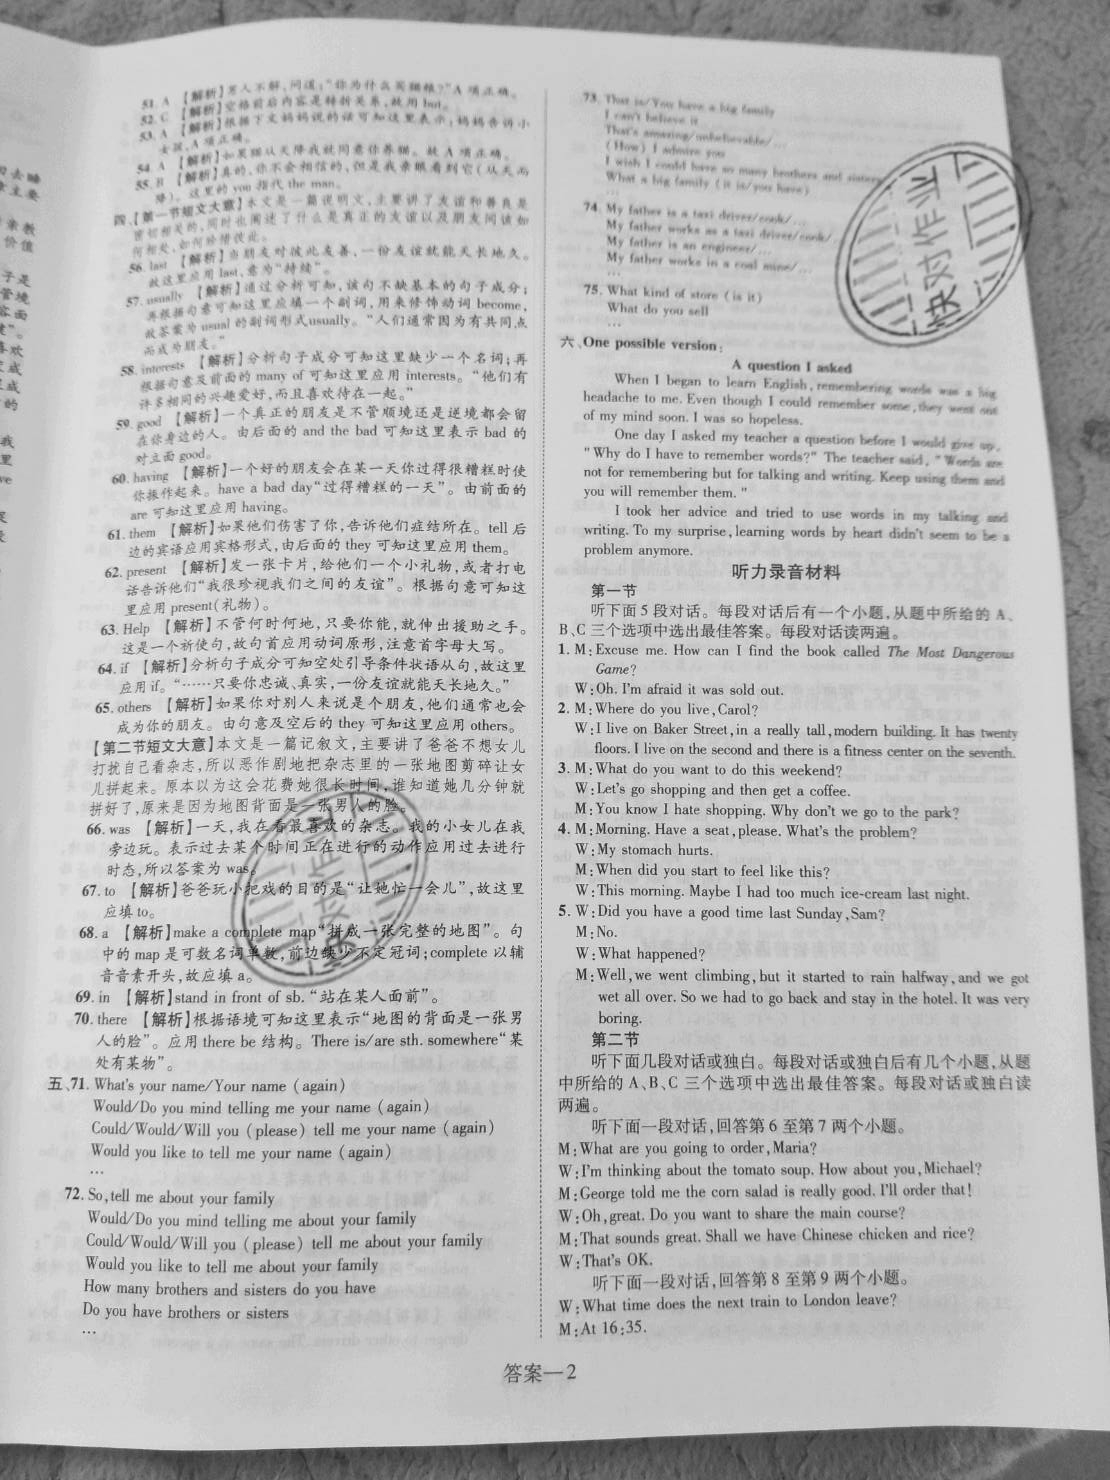 51. A 【解析】男人不解,问道:“你为什么买猫粮?”A项正确。
52. C 【解析】空格前后内容是转折关系,故用but。
53. A 【解析】根据下文妈妈说的话可知这里表示:妈妈告诉小
女孩,A项正确。
54. A 【解析】如果猫从天降我就同意你养猫。故A项正确。
55. B 【解析】真的,你不会相信的,但是我亲眼看到它(从天而
降)。这里的you指代the man。
四、【第一节短文大意】本文是一篇说明文,主要讲了友谊和善良是
密切相关的,同时也阐述了什么是真正的友谊以及朋友间该如
何相处、如何珍惜彼此。
56. last 【解析】当朋友对彼此友善,一份友谊就能天长地久。
故这里应用last,意为“持续”。
57. usually 【解析】通过分析可知,该句不缺基本的句子成分;
再根据句意可知这里应填一个副词,用来修饰动词become,
故答案为usual的副词形式usually。“人们通常因为有共同点
而成为朋友。”
58. interests 【解析】分析句子成分可知这里缺少一个名词;再
根据句意及前面的many of可知这里应用interests。“他们有
许多相同的兴趣爱好,而且喜欢待在一起。”
59. good 【解析】一个真正的朋友是不管顺境还是逆境都会留
在你身边的人。由后面的and the bad可知这里表示bad的
对立面good。
60. having 【解析】一个好的朋友会在某一天你过得很糟糕时使
你振作起来。have a bad day“过得糟糕的一天”。由前面的
are可知这里应用having。
61. them 【解析】如果他们伤害了你,告诉他们症结所在。tell后
边的宾语应用宾格形式,由后面的they可知这里应用them。
62. present 【解析】发一张卡片,给他们一个小礼物,或者打电
话告诉他们“我很珍视我们之间的友谊”。根据句意可知这
里应用present(礼物)。
63. Help 【解析】不管何时何地,只要你能,就伸出援助之手。
这是一个祈使句,故句首应用动词原形,注意首字母大写。
64. if 【解析】分析句子成分可知空处引导条件状语从句,故这里
应用if。“……只要你忠诚、真实,一份友谊就能天长地久。”
65. others 【解析】如果你对别人来说是个朋友,他们通常也会
成为你的朋友。由句意及空后的they可知这里应用others。
【第二节短文大意】本文是一篇记叙文,主要讲了爸爸不想女儿
打扰自己看杂志,所以恶作剧地把杂志里的一张地图剪碎让女
儿拼起来。原本以为这会花费她很长时间,谁知道她几分钟就
拼好了,原来是因为地图背面是一张男人的脸。
66. was 【解析】一天,我在看最喜欢的杂志。我的小女儿在我
旁边玩。表示过去某个时间正在进行的动作应用过去进行
时态,所以答案为was。
67. to 【解析】爸爸玩小把戏的目的是“让她忙一会儿”,故这里
应填to。
68. a 【解析】make a complete map“拼成一张完整的地图”。句
中的map是可数名词单数,前边缺少不定冠词;complete以辅
音音素开头,故应填a。
69. in 【解析】stand in front of sb.“站在某人面前”。
70. there 【解析】根据语境可知这里表示“地图的背面是一张男
人的脸”。应用there be结构。There is/are sth. somewhere“某
处有某物”。
五、71. What's your name/Your name (again)
Would/Do you mind telling me your name (again)
Could/Would/Will you (please) tell me your name (again)
Would you like to tell me your name (again)
…
72. So, tell me about your family
Would/Do you mind telling me about your family
Could/Would/Will you (please) tell me about your family
Would you like to tell me about your family
How many brothers and sisters do you have
Do you have brothers or sisters
…
73. That is/You have a big family
I can't believe it
That's amazing/unbelievable/…
(How) I admire you
I wish I could have so many brothers and sisters
What a big family (it is/you have)
…
74. My father is a taxi driver/cook/…
My father works as a taxi driver/cook/…
My father is an engineer/…
My father works in a coal mine/…
…
75. What kind of store (is it)
What do you sell
…
六、One possible version:
A question I asked
When I began to learn English, remembering words was a big
headache to me. Even though I could remember some, they went out
of my mind soon. I was so hopeless.
One day I asked my teacher a question before I would give up,
"Why do I have to remember words?" The teacher said, "Words are
not for remembering but for talking and writing. Keep using them and
you will remember them."
I took her advice and tried to use words in my talking and
writing. To my surprise, learning words by heart didn't seem to be a
problem anymore.
听力录音材料
第一节
听下面5段对话。每段对话后有一个小题,从题中所给的A、
B、C三个选项中选出最佳答案。每段对话读两遍。
1. M: Excuse me. How can I find the book called The Most Dangerous
Game?
W: Oh. I'm afraid it was sold out.
2. M: Where do you live, Carol?
W: I live on Baker Street, in a really tall, modern building. It has twenty
floors. I live on the second and there is a fitness center on the seventh.
3. M: What do you want to do this weekend?
W: Let's go shopping and then get a coffee.
M: You know I hate shopping. Why don't we go to the park?
4. M: Morning. Have a seat, please. What's the problem?
W: My stomach hurts.
M: When did you start to feel like this?
W: This morning. Maybe I had too much ice-cream last night.
5. W: Did you have a good time last Sunday, Sam?
M: No.
W: What happened?
M: Well, we went climbing, but it started to rain halfway, and we got
wet all over. So we had to go back and stay in the hotel. It was very
boring.
第二节
听下面几段对话或独白。每段对话或独白后有几个小题,从题
中所给的A、B、C三个选项中选出最佳答案。每段对话或独白读
两遍。
听下面一段对话,回答第6至第7两个小题。
M: What are you going to order, Maria?
W: I'm thinking about the tomato soup. How about you, Michael?
M: George told me the corn salad is really good. I'll order that!
W: Oh, great. Do you want to share the main course?
M: That sounds great. Shall we have Chinese chicken and rice?
W: That's OK.
听下面一段对话,回答第8至第9两个小题。
W: What time does the next train to London leave?
M: At 16:35.
答案—2
快对作业
快对作业